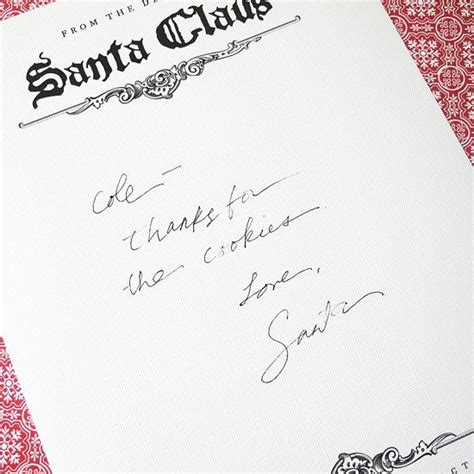 FROM THE DE
Santa Claus
Cole —
Thanks for
the cookies.
Love,
Santa